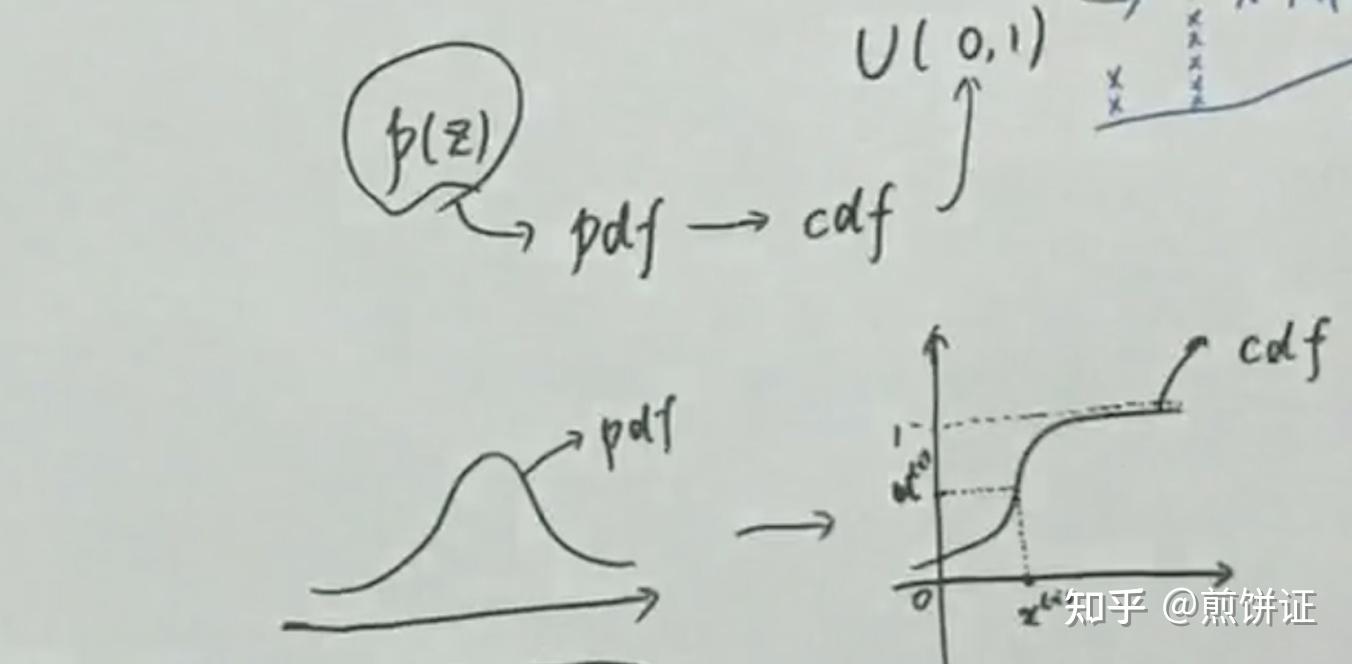 U(0,1)
p(z)
pdf → cdf
cdf
pdf
1
u⁽ⁱ⁾
0
x⁽ⁱ⁾
知乎 @煎饼证